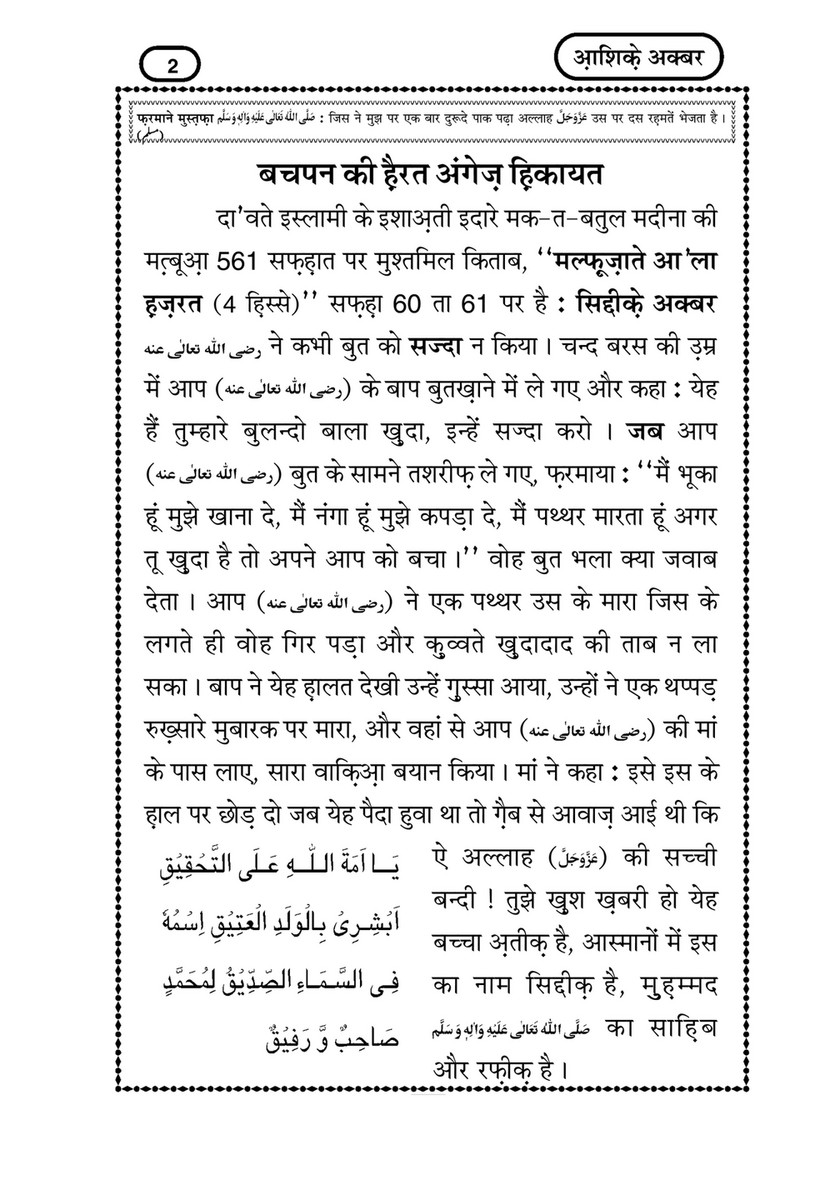 2
आ़शिके़ अक्बर
फ़रमाने मुस्त़फ़ा صَلَّى اللهُ تَعَالٰى عَلَيْهِ وَاٰلِهٖ وَسَلَّم : जिस ने मुझ पर एक बार दुरूदे पाक पढ़ा अल्लाह عَزَّوَجَلَّ उस पर दस रह़मतें भेजता है ।
(مسلم)
बचपन की ह़ैरत अंगेज़ ह़िकायत
दा'वते इस्लामी के इशाअ़ती इदारे मक-त-बतुल मदीना की
मत़्बूआ़ 561 सफ़ह़ात पर मुश्तमिल किताब, ‘‘मल्फ़ूज़ाते आ'ला
ह़ज़रत (4 ह़िस्से)’’ सफ़ह़ा 60 ता 61 पर है : सिद्दीके़ अक्बर
رضى الله تعالٰى عنه ने कभी बुत को सज्दा न किया । चन्द बरस की उ़म्र
में आप (رضى الله تعالٰى عنه) के बाप बुतख़ाने में ले गए और कहा : येह
हैं तुम्हारे बुलन्दो बाला खु़दा, इन्हें सज्दा करो । जब आप
(رضى الله تعالٰى عنه) बुत के सामने तशरीफ़ ले गए, फ़रमाया : ‘‘मैं भूका
हूं मुझे खाना दे, मैं नंगा हूं मुझे कपड़ा दे, मैं पथ्थर मारता हूं अगर
तू खु़दा है तो अपने आप को बचा ।’’ वोह बुत भला क्या जवाब
देता । आप (رضى الله تعالٰى عنه) ने एक पथ्थर उस के मारा जिस के
लगते ही वोह गिर पड़ा और कु़व्वते खु़दादाद की ताब न ला
सका । बाप ने येह ह़ालत देखी उन्हें गु़स्सा आया, उन्हों ने एक थप्पड़
रुख़्सारे मुबारक पर मारा, और वहां से आप (رضى الله تعالٰى عنه) की मां
के पास लाए, सारा वाकि़आ़ बयान किया । मां ने कहा : इसे इस के
ह़ाल पर छोड़ दो जब येह पैदा हुवा था तो गै़ब से आवाज़ आई थी कि
يَـا اَمَةَ اللّٰهِ عَلَى التَّحْقِيْقِ
اَبْشِرِىْ بِالْوَلَدِ الْعَتِيْقِ اِسْمُهٗ
فِى السَّمَاءِ الصِّدِّيْقُ لِمُحَمَّدٍ
صَاحِبٌ وَّ رَفِيْقٌ
ऐ अल्लाह (عَزَّوَجَلَّ) की सच्ची
बन्दी ! तुझे खु़श ख़बरी हो येह
बच्चा अ़तीक़ है, आस्मानों में इस
का नाम सिद्दीक़ है, मुह़म्मद
صَلَّى اللهُ تَعَالٰى عَلَيْهِ وَاٰلِهٖ وَسَلَّم का साह़िब
और रफ़ीक़ है ।